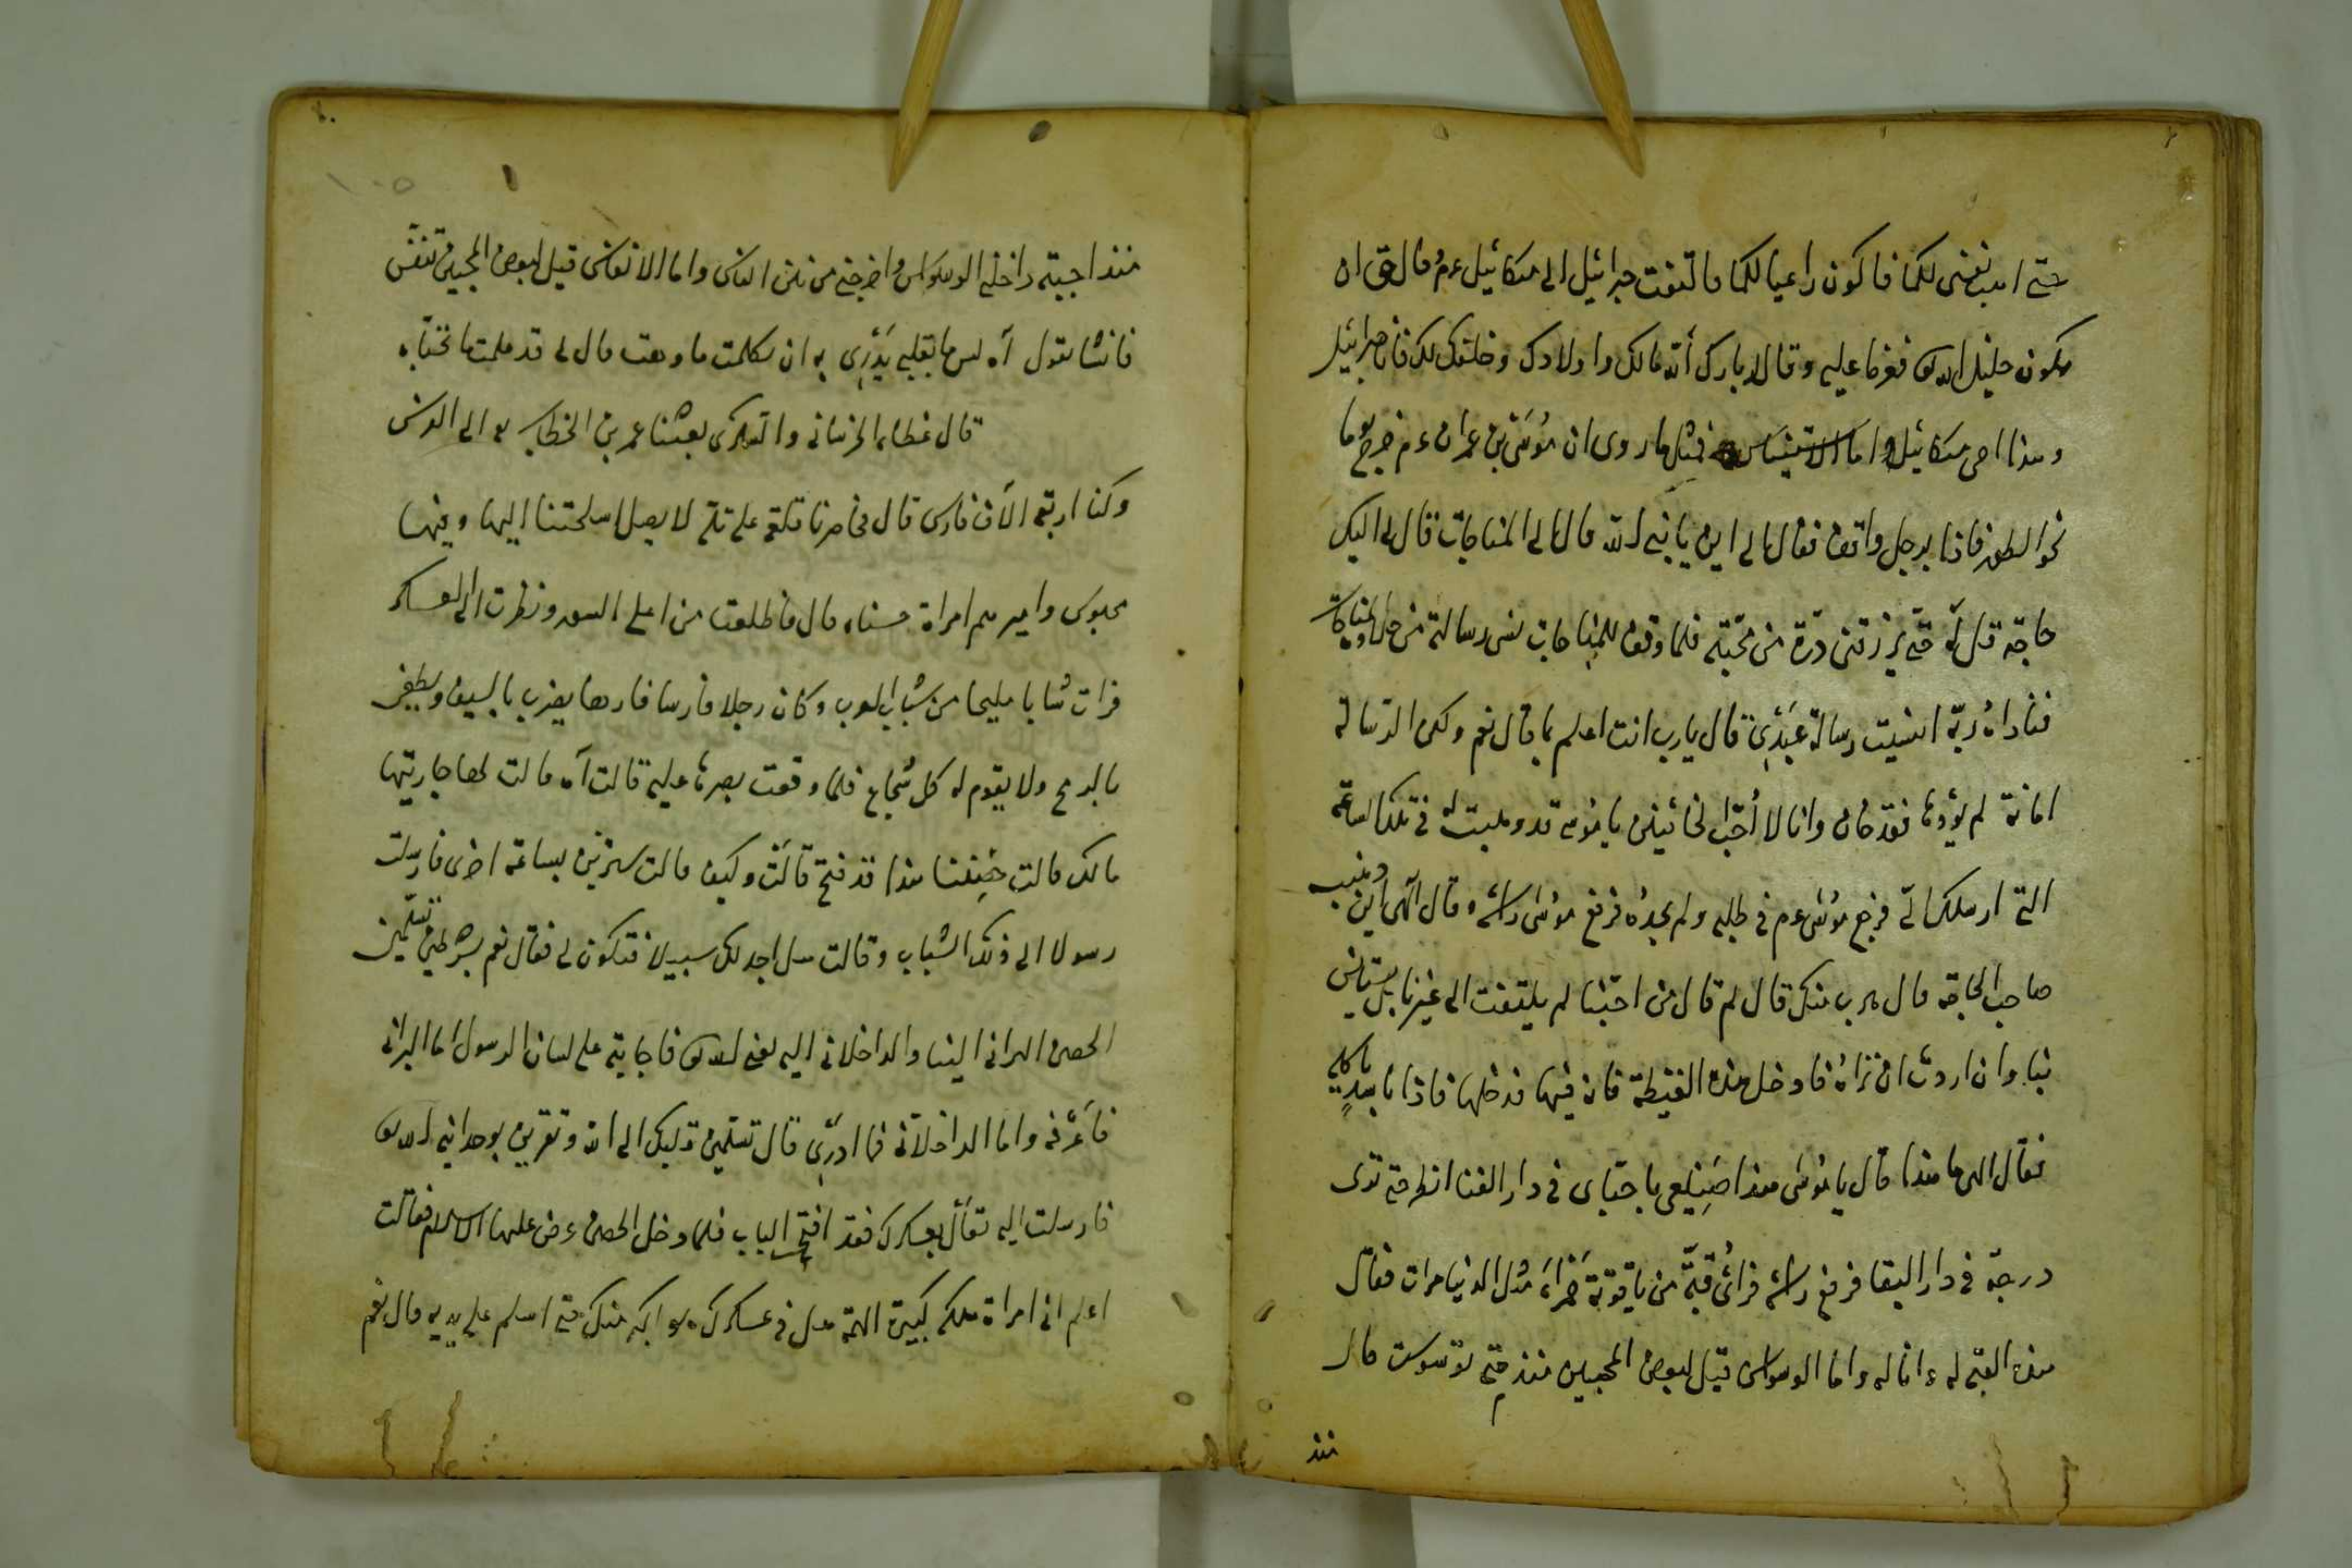 حتى اهب نفسى لكما فاكون راعيا لكما فالتفت جبرائيل الى ميكائيل عم وقال حق ان
يكون خليل الله تع فعزما عليه وقالا بارك الله مالك واولادك وخلتك لك فان جبرائيل
وهذا اخى ميكائيل واما الاستيناس فمثل ما روى ان موسى بن عمران عم خرج يوما
نحو الطور فاذا برجل واقف فقال الى اين يا نبى الله قال الى المناجات قال لى اليك
حاجة قل له حتى يرزقنى ذرة من محبته فلما وقف للمناجات نسى رسالته من حلاوة المناجات
فناداه ربه انسيت رسالة عبدى قال يارب انت اعلم بما قال نعم ولكن الرسالة
امانة لم يؤدها فقد خان وانا لا احب الخائنين يا موسى قد وهبت له فى تلك الساعة
التى ارسلك الى فرجع موسى عم فى طلبه ولم يجده فرفع موسى رأسه وقال الهى اين ذهب
صاحب الحاجة قال هرب منك قال لم قال من احبنا لم يلتفت الى غيرنا بل يستانس
بنا وان اردت ان تراه فادخل هذه الغيطة فانه فيها فدخلها فاذا باسد ياكله
فقال الهى ما هذا قال يا موسى هذا صنيعى باحبابى فى دار الفنا انظر حتى ترى
درجته فى دار البقا فرفع رأسه فرأى قبة من ياقوتة حمراء مثل الدنيا مرات فقال
هذه القبة له وانا له واما الوسواس قيل لبعض المحبين منذ متى توسوست قال
منذ
١٠٥
منذ احببته داخلنى الوسواس واخرجنى من بين الناس واما الانفاس قيل لبعض المحبين تنفس
فانشا يقول آه لمن ما بقلبى يدرى به ان تكلمت ما وصفت قال لى قد علمت ما تخباه
قال عطاء الخراسانى والتسترى بعثنا عمر بن الخطاب رض الى الفرس
وكنا اربعة الآف فارس قال فحاصرنا قلعة على تلة لا يصل اسلحتنا اليها وفيها
مجوس واميرهم امراة حسناء قال فاطلعت من اعلى السور ونظرت الى العسكر
فرات شابا مليحا من شباب العرب وكان رجلا فارسا فارها يضرب بالسيف ويطعن
بالرمح ولا يقوم له كل شجاع فلما وقعت بصرها عليه قالت آه قالت لها جاريتها
مالك قالت حصننا هذا قد فتح قالت وكيف قالت سترين بساعة اخرى فارسلت
رسولا الى ذلك الشباب وقالت هل اجد لك سبيلا فتكون لى فقال نعم بشرطين تسلمين
الحصن البرانى الينا والداخلانى اليه يعنى لله تع فاجابته على لسان الرسول اما البرانى
فاعرفه واما الداخلانى فما ادرى قال تسلمين قلبك الى الله وتقرين بوحدانية الله تع
فارسلت اليه تعال بعسكرك فقد افتح الباب فلما دخل الحصن عرض عليها الاسلام فقالت
اعلم انى امراة ملكة كبيرة الهمة هل فى عسكرك هو اكبر منك حتى اسلم على يديه قال نعم